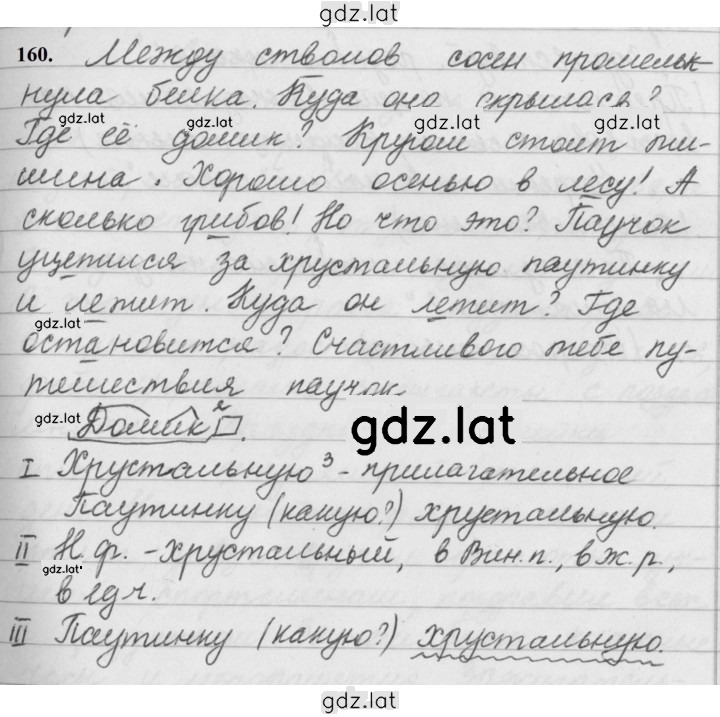 gdz.lat
160. Между стволов сосен промельк-
нула белка. Куда она скрылась?
gdz.lat gdz.lat gdz.lat
Где её домик? Кругом стоит ти-
шина. Хорошо осенью в лесу! А
сколько грибов! Но что это? Паучок
уцепился за хрустальную паутинку
и летит. Куда он летит? Где
gdz.lat
остановится? Счастливого тебе пу-
тешествия паучок.
gdz.lat Домик². gdz.lat
I Хрустальную³ - прилагательное
Паутинку (какую?) хрустальную.
II Н.ф. - хрустальный, в Вин.п., в ж.р.,
gdz.lat
в ед.ч.
III Паутинку (какую?) хрустальную.
gdz.lat